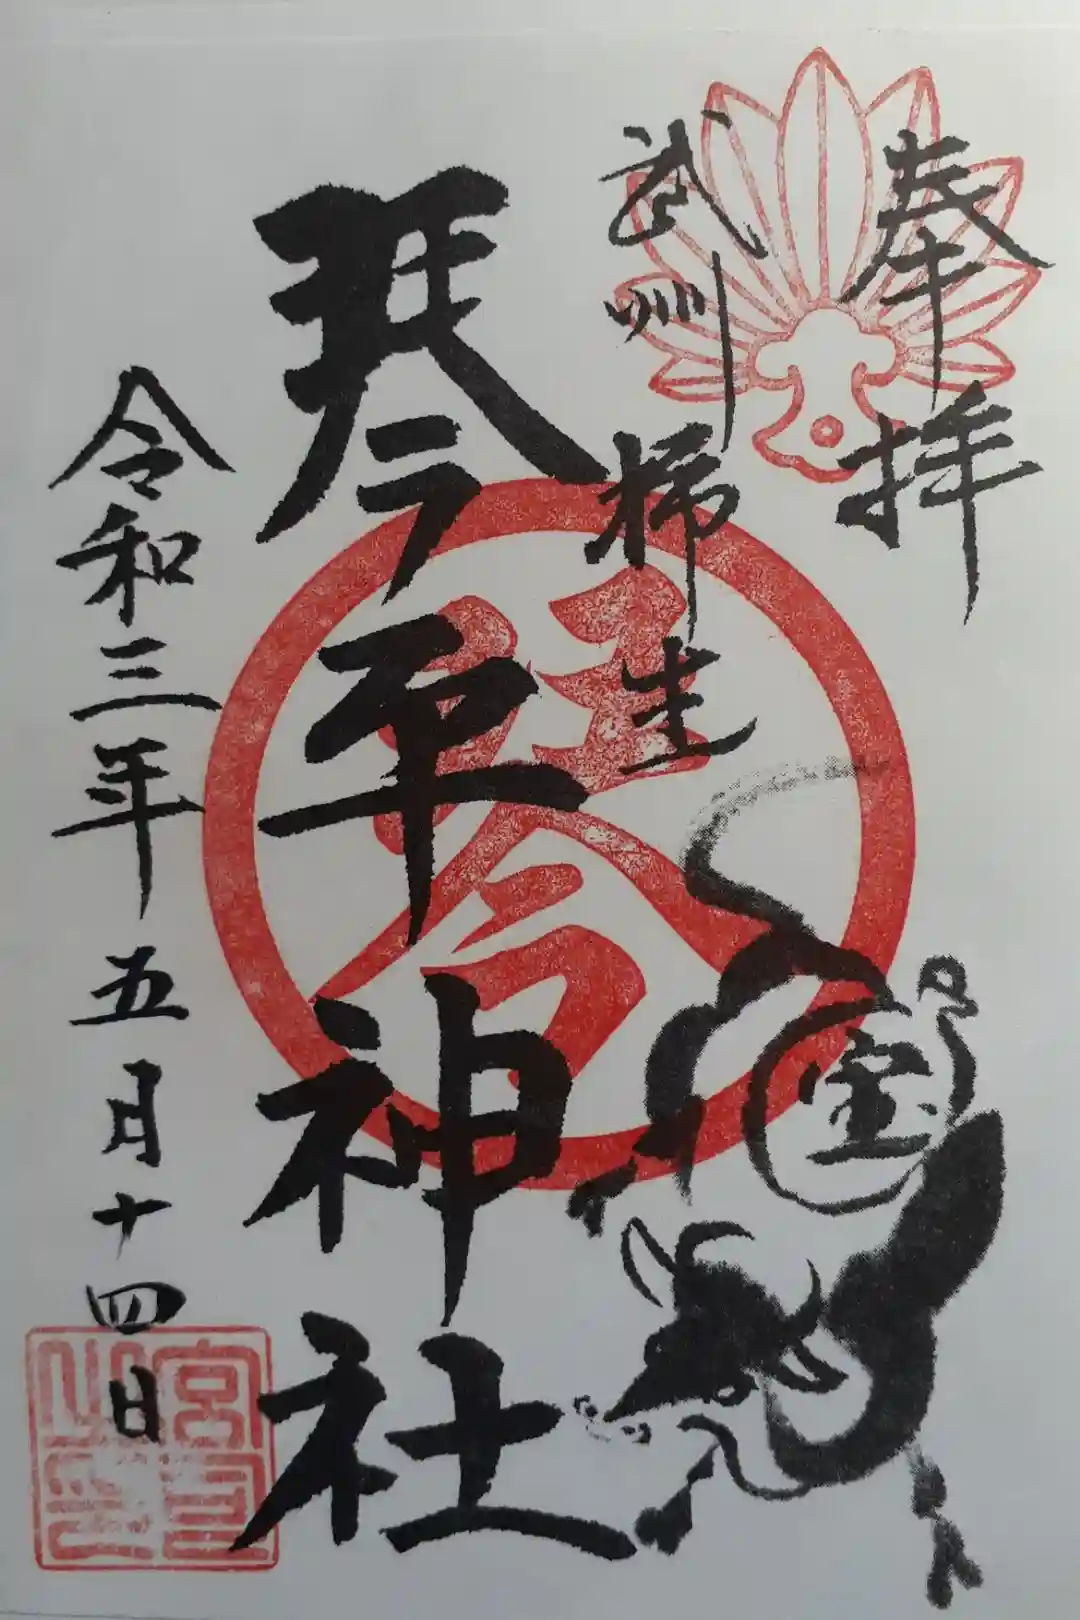 奉拝
武州柿生
琴平神社
令和三年五月十四日
琴
宝
宮司之印